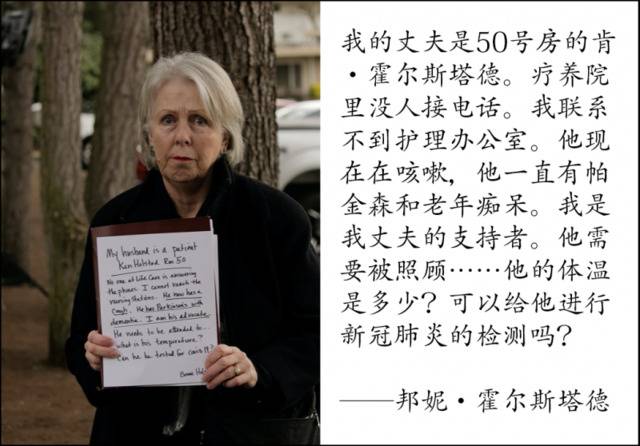 My husband is a patient
Ken Holstad Rm 50
No one at Life Care is answering
the phones. I cannot reach the
nursing stations. He now has a
cough. He has Parkinsons with
dementia. I am his advocate.
He needs to be attended to...
what is his temperature?
Can he be tested for
Bonnie
我的丈夫是50号房的肯
·霍尔斯塔德。疗养院
里没人接电话。我联系
不到护理办公室。他现
在在咳嗽，他一直有帕
金森和老年痴呆。我是
我丈夫的支持者。他需
要被照顾……他的体温
是多少？可以给他进行
新冠肺炎的检测吗？
——邦妮·霍尔斯塔德